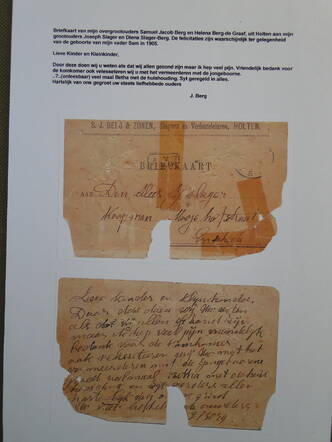 Briefkaart van mijn overgrootouders Samuel Jacob Berg en Helena Berg-de Graaf, uit Holten aan mijn
grootouders Joseph Slager en Diena Slager-Berg. De felicitaties zijn waarschijnlijk ter gelegenheid
van de geboorte van mijn vader Sam in 1905.
Lieve Kinder en Kleinkinder,
Door deze doen wij U weten als dat wij allen gezond zijn maar ik hep veel pijn. Vriendelijk bedank voor
de komkomer ook velesseteren wij u met het vermeenderen met de jongeboorne.
..?..(onleesbaar) veel maal Betha met de huishouding. Syt geregeld in alles.
Hartelijk van ons gegroet uw steets liefhebbende ouders
J. Berg
S. J. BEIJ & ZONEN, Slagers en Veehandelaren, HOLTEN.
BRIEFKAART
AAN Den Heer Slager
Koopman
Lieve Kinder en Klijnkinder,
Door dese doen wij U weten
als dat wij allen gesont sijn
maar ik hep veel pijn vriendelijk
bedank voor de komkomer
ook
met het
vermeenderen met de jongeboorne
veelmaal Betha met
in alles
hart van ons
ouders
J Berg